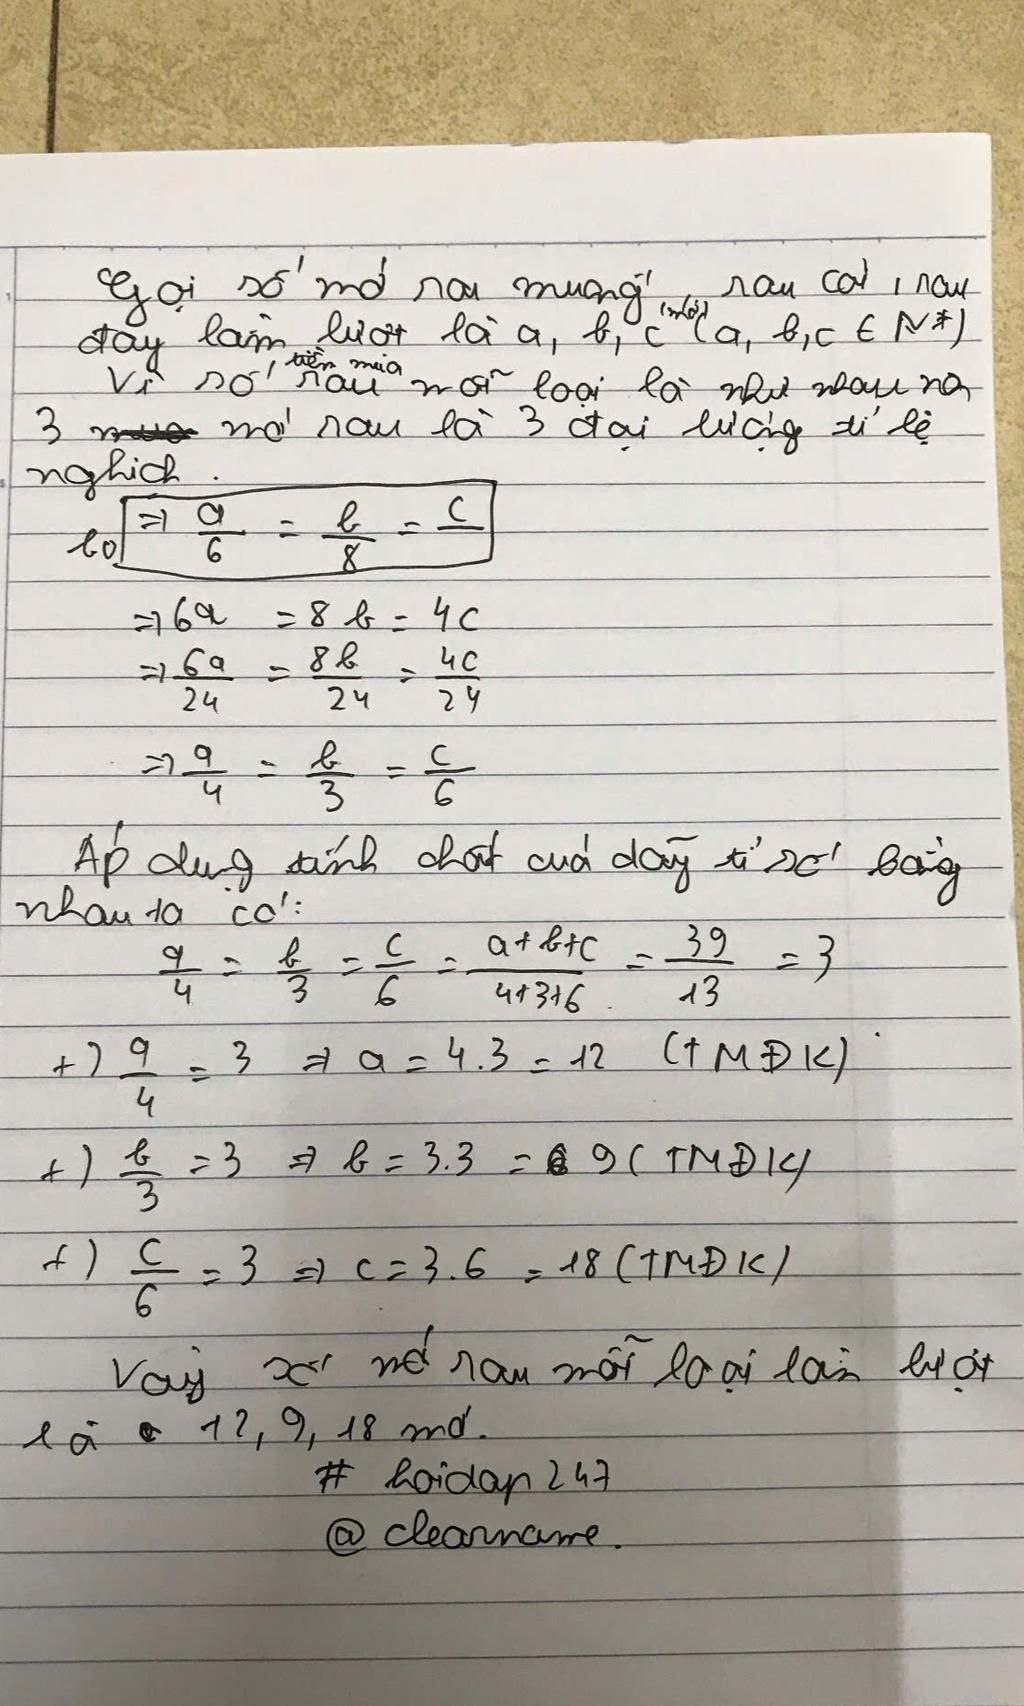 Gọi số mớ rau muống, rau cải, rau
đay lần lượt là a, b, c (mớ) (a, b, c ∈ N*)
Vì số tiền mua rau mỗi loại là như nhau nên
3 mớ rau là 3 đại lượng tỉ lệ
nghịch.
bỏ ⇒ a/6 = b/8 = c/
⇒ 6a = 8b = 4c
⇒ 6a/24 = 8b/24 = 4c/24
⇒ a/4 = b/3 = c/6
Áp dụng tính chất của dãy tỉ số bằng
nhau ta có:
a/4 = b/3 = c/6 = a+b+c/4+3+6 = 39/13 = 3
+) a/4 = 3 ⇒ a = 4.3 = 12 (TMĐK)
+) b/3 = 3 ⇒ b = 3.3 = 9 (TMĐK)
+) c/6 = 3 ⇒ c = 3.6 = 18 (TMĐK)
Vậy số mớ rau mỗi loại lần lượt
là 12, 9, 18 mớ.
# hoidap247
@ clearname.